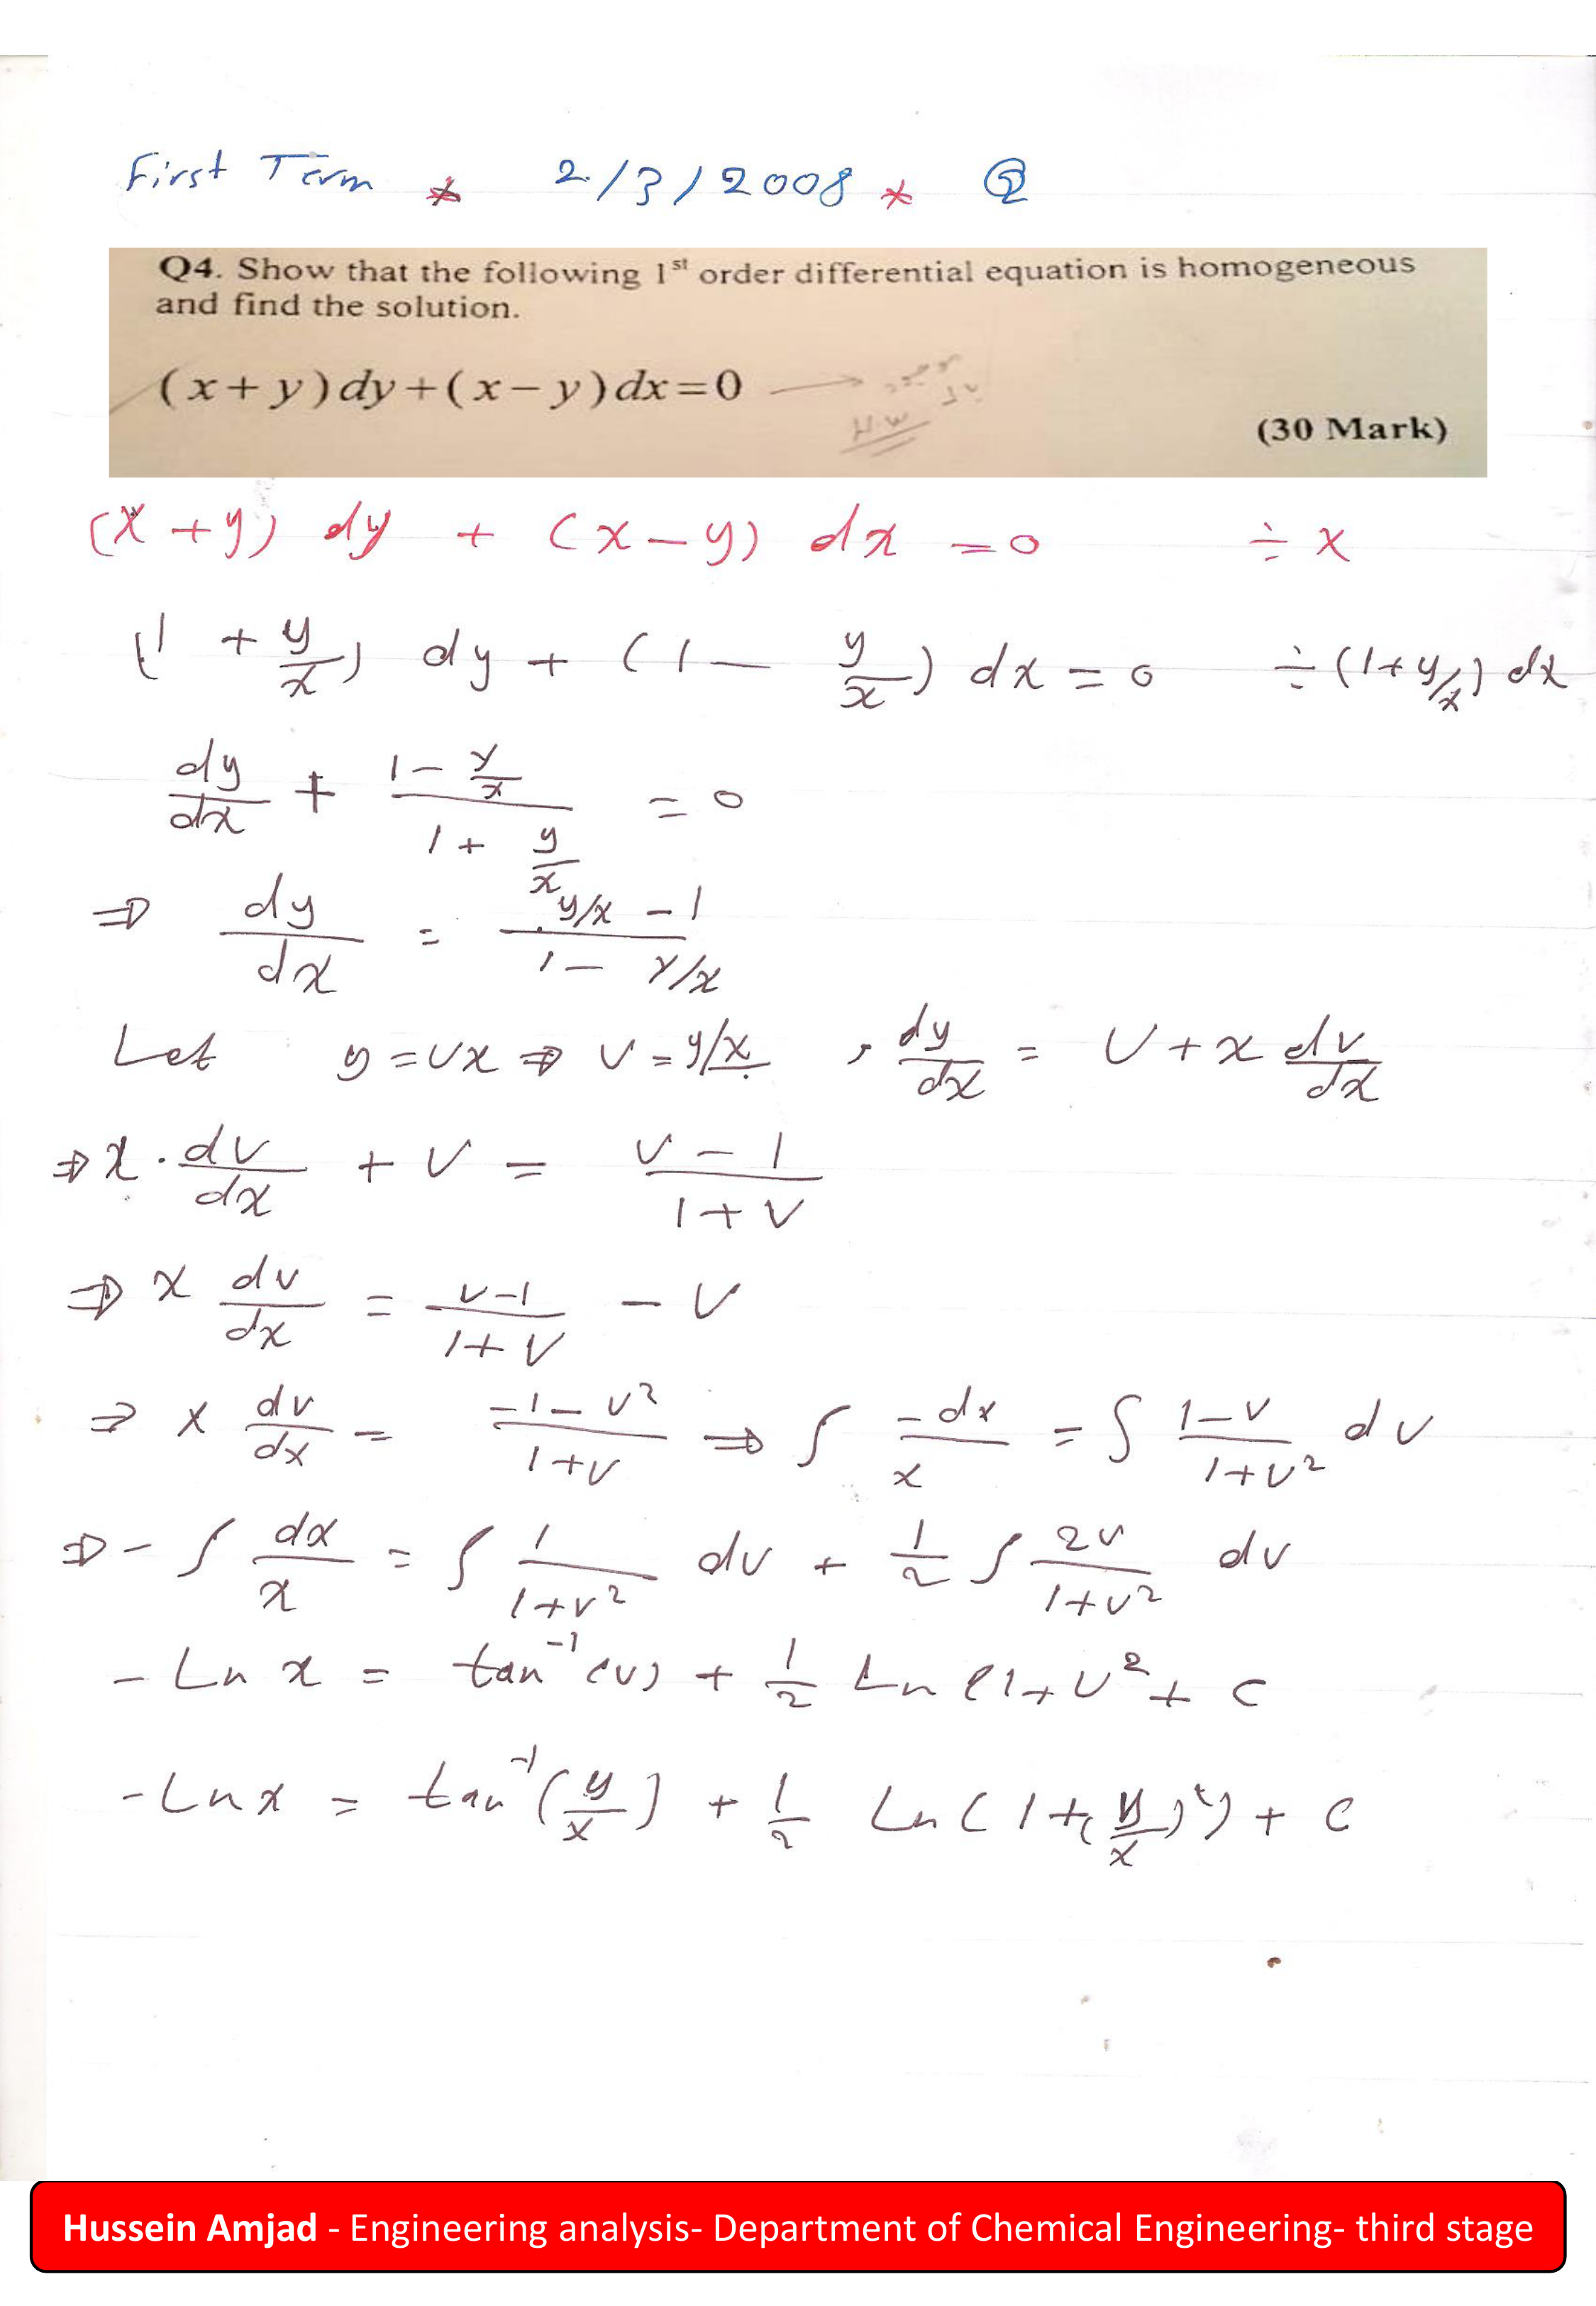 First Term * 2/3/2008 * Q
Q4. Show that the following 1st order differential equation is homogeneous
and find the solution.
(x+y)dy+(x-y)dx=0 →
H.W
(30 Mark)
(x+y) dy + (x-y) dx = 0 ÷ x
(1 + y/x) dy + (1 - y/x) dx = 0 ÷ (1+y/x) dx
dy/dx + (1 - y/x)/(1 + y/x) = 0
⇒ dy/dx = (y/x - 1)/(1 - y/x)
Let y = vx ⇒ v = y/x , dy/dx = v + x dv/dx
⇒ x · dv/dx + v = (v - 1)/(1 + v)
⇒ x dv/dx = (v-1)/(1+v) - v
⇒ x dv/dx = (-1-v²)/(1+v) ⇒ ∫ -dx/x = ∫ (1-v)/(1+v²) dv
⇒ - ∫ dx/x = ∫ 1/(1+v²) dv + 1/2 ∫ 2v/(1+v²) dv
- Ln x = tan⁻¹(v) + 1/2 Ln (1+v² + c
- Ln x = tan⁻¹(y/x) + 1/2 Ln (1+(y/x)²) + c
Hussein Amjad - Engineering analysis- Department of Chemical Engineering- third stage